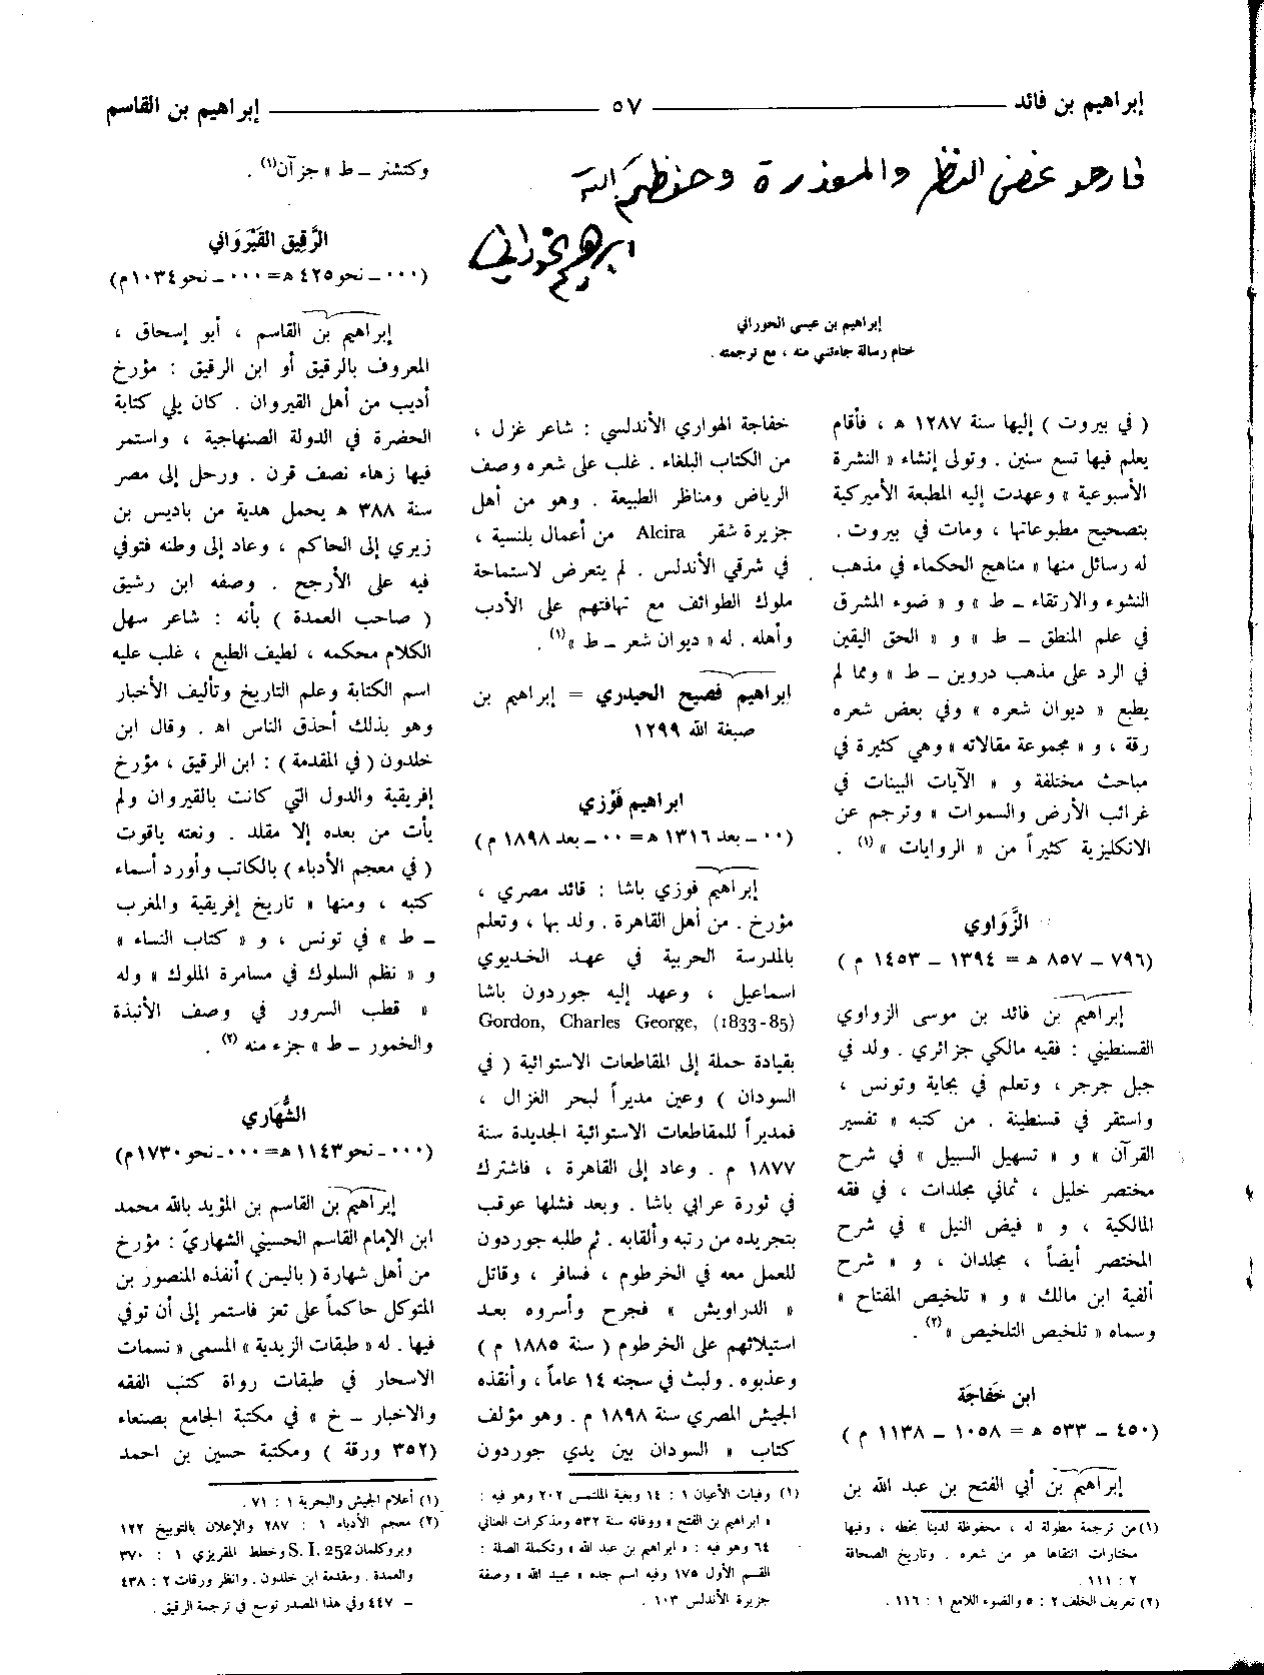 إبراهيم بن فائد ٥٧ إبراهيم بن القاسم
فارجو غض النظر والمعذرة وحفظكم الله
ابرهيم الحوراني
إبراهيم بن عيسى الحوراني
ختام رسالة جاءتني منه ، مع ترجمته .
( في بيروت ) إليها سنة ١٢٨٧ هـ ، فأقام
يعلم فيها تسع سنين . وتولى إنشاء « النشرة
الأسبوعية » وعهدت إليه المطبعة الأميركية
بتصحيح مطبوعاتها ، ومات في بيروت .
له رسائل منها « مناهج الحكماء في مذهب
النشوء والارتقاء ـ ط » و « ضوء المشرق
في علم المنطق ـ ط » و « الحق اليقين
في الرد على مذهب دروين ـ ط » ومما لم
يطبع « ديوان شعره » وفي بعض شعره
رقة ، و « مجموعة مقالاته » وهي كثيرة في
مباحث مختلفة و « الآيات البينات في
غرائب الأرض والسموات » وترجم عن
الانكليزية كثيراً من « الروايات » (١) .
الزَّوَاوي
(٧٩٦ ـ ٨٥٧ هـ = ١٣٩٤ ـ ١٤٥٣ م )
إبراهيم بن فائد بن موسى الزواوي
القسنطيني : فقيه مالكي جزائري . ولد في
جبل جرجر ، وتعلم في بجاية وتونس ،
واستقر في قسنطينة . من كتبه « تفسير
القرآن » و « تسهيل السبيل » في شرح
مختصر خليل ، ثماني مجلدات ، في فقه
المالكية ، و « فيض النيل » في شرح
المختصر أيضاً ، مجلدان ، و « شرح
ألفية ابن مالك » و « تلخيص المفتاح »
وسماه « تلخيص التلخيص » (٢) .
ابن خَفاجَة
(٤٥٠ ـ ٥٣٣ هـ = ١٠٥٨ ـ ١١٣٨ م )
إبراهيم بن أبي الفتح بن عبد الله بن
(١) من ترجمة مطولة له ، محفوظة لدينا بخطه ، وفيها
مختارات انتقاها هو من شعره . وتاريخ الصحافة
٢ : ١١١ .
(٢) تعريف الخلف ٢ : ٥ والضوء اللامع ١ : ١١٦ .
خفاجة الهواري الأندلسي : شاعر غزل ،
من الكتاب البلغاء . غلب على شعره وصف
الرياض ومناظر الطبيعة . وهو من أهل
جزيرة شقر Alcira من أعمال بلنسية ،
في شرقي الأندلس . لم يتعرض لاستماحة
ملوك الطوائف مع تهافتهم على الأدب
وأهله . له « ديوان شعر ـ ط » (١) .
إبراهيم فصيح الحيدري = إبراهيم بن
صبغة الله ١٢٩٩
ابراهيم فَوْزي
(٠٠ ـ بعد ١٣١٦ هـ = ٠٠ ـ بعد ١٨٩٨ م )
إبراهيم فوزي باشا : قائد مصري ،
مؤرخ . من أهل القاهرة . ولد بها ، وتعلم
بالمدرسة الحربية في عهد الخديوي
اسماعيل ، وعهد إليه جوردون باشا
Gordon, Charles George, (1833-85)
بقيادة حملة إلى المقاطعات الاستوائية ( في
السودان ) وعين مديراً لبحر الغزال ،
فمديراً للمقاطعات الاستوائية الجديدة سنة
١٨٧٧ م . وعاد إلى القاهرة ، فاشترك
في ثورة عرابي باشا . وبعد فشلها عوقب
بتجريده من رتبه وألقابه . ثم طلبه جوردون
للعمل معه في الخرطوم ، فسافر ، وقاتل
« الدراويش » فجرح وأسروه بعد
استيلائهم على الخرطوم ( سنة ١٨٨٥ م )
وعذبوه . ولبث في سجنه ١٤ عاماً ، وأنقذه
الجيش المصري سنة ١٨٩٨ م . وهو مؤلف
كتاب « السودان بين يدي جوردون
(١) وفيات الأعيان ١ : ١٤ وبغية الملتمس ٢٠٢ وهو فيه :
« ابراهيم بن الفتح » ووفاته سنة ٥٣٢ ومذكرات العناني
٦٤ وهو فيه : « ابراهيم بن عبد الله » وتكملة الصلة :
القسم الأول ١٧٥ وفيه اسم جده « عبيد الله » وصفة
جزيرة الأندلس ١٠٣ .
وكتشنر ـ ط » جزآن (١) .
الرَّقِيق القَيْرَوَاني
(٠٠٠ ـ نحو ٤٢٥ هـ = ٠٠٠ ـ نحو ١٠٣٤ م)
إبراهيم بن القاسم ، أبو إسحاق ،
المعروف بالرقيق أو ابن الرقيق : مؤرخ
أديب من أهل القيروان . كان يلي كتابة
الحضرة في الدولة الصنهاجية ، واستمر
فيها زهاء نصف قرن . ورحل إلى مصر
سنة ٣٨٨ هـ يحمل هدية من باديس بن
زيري إلى الحاكم ، وعاد إلى وطنه فتوفي
فيه على الأرجح . وصفه ابن رشيق
( صاحب العمدة ) بأنه : شاعر سهل
الكلام محكمه ، لطيف الطبع ، غلب عليه
اسم الكتابة وعلم التاريخ وتأليف الأخبار
وهو بذلك أحذق الناس اهـ . وقال ابن
خلدون ( في المقدمة ) : ابن الرقيق ، مؤرخ
إفريقية والدول التي كانت بالقيروان ولم
يأت من بعده إلا مقلد . ونعته ياقوت
( في معجم الأدباء ) بالكاتب وأورد أسماء
كتبه ، ومنها « تاريخ إفريقية والمغرب
ـ ط » في تونس ، و « كتاب النساء »
و « نظم السلوك في مسامرة الملوك » وله
« قطب السرور في وصف الأنبذة
والخمور ـ ط » جزء منه (٢) .
الشُّهَاري
(٠٠٠ ـ نحو ١١٤٣ هـ = ٠٠٠ ـ نحو ١٧٣٠ م)
إبراهيم بن القاسم بن المؤيد بالله محمد
ابن الإمام القاسم الحسيني الشهاريّ : مؤرخ
من أهل شهارة ( باليمن ) أنفذه المنصور بن
المتوكل حاكماً على تعز فاستمر إلى أن توفي
فيها . له « طبقات الزيدية » المسمى « نسمات
الاسحار في طبقات رواة كتب الفقه
والاخبار ـ خ » في مكتبة الجامع بصنعاء
(٣٥٢ ورقة ) ومكتبة حسين بن احمد
(١) أعلام الجيش والبحرية ١ : ٧١ .
(٢) معجم الأدباء ١ : ٢٨٧ والإعلان بالتوبيخ ١٢٢
وبروكلمان S. I. 252 وخطط المقريزي ١ : ٣٧٠
والعمدة . ومقدمة ابن خلدون . وانظر ورقات ٢ : ٤٣٨
ـ ٤٤٧ وفي هذا المصدر توسع في ترجمة الرقيق .